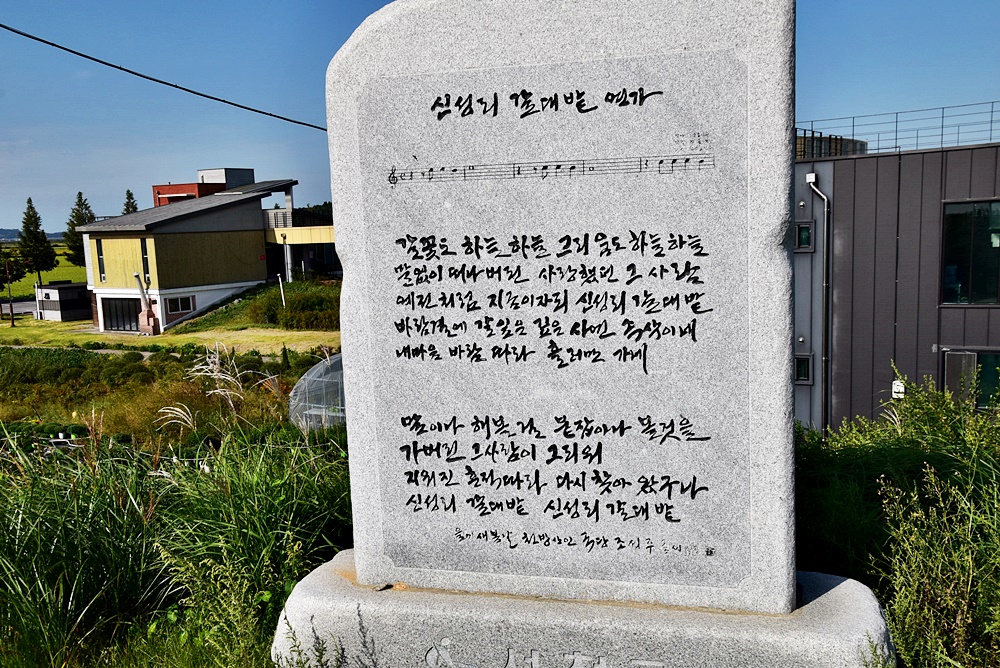 신성리 갈대밭 연가
갈꽃도 하늘하늘 그리움도 하늘하늘
말없이 떠나버린 사랑했던 그 사람
예전처럼 지금이자리 신성리 갈대밭
바람결에 갈잎은 깊은 사연 속삭이네
내마음 바람 따라 흘러만 가네
말이나 해볼걸 붙잡아나 볼것을
가버린 그사람이 그리워
지워진 흔적따라 다시 찾아 왔구나
신성리 갈대밭 신성리 갈대밭
조성주